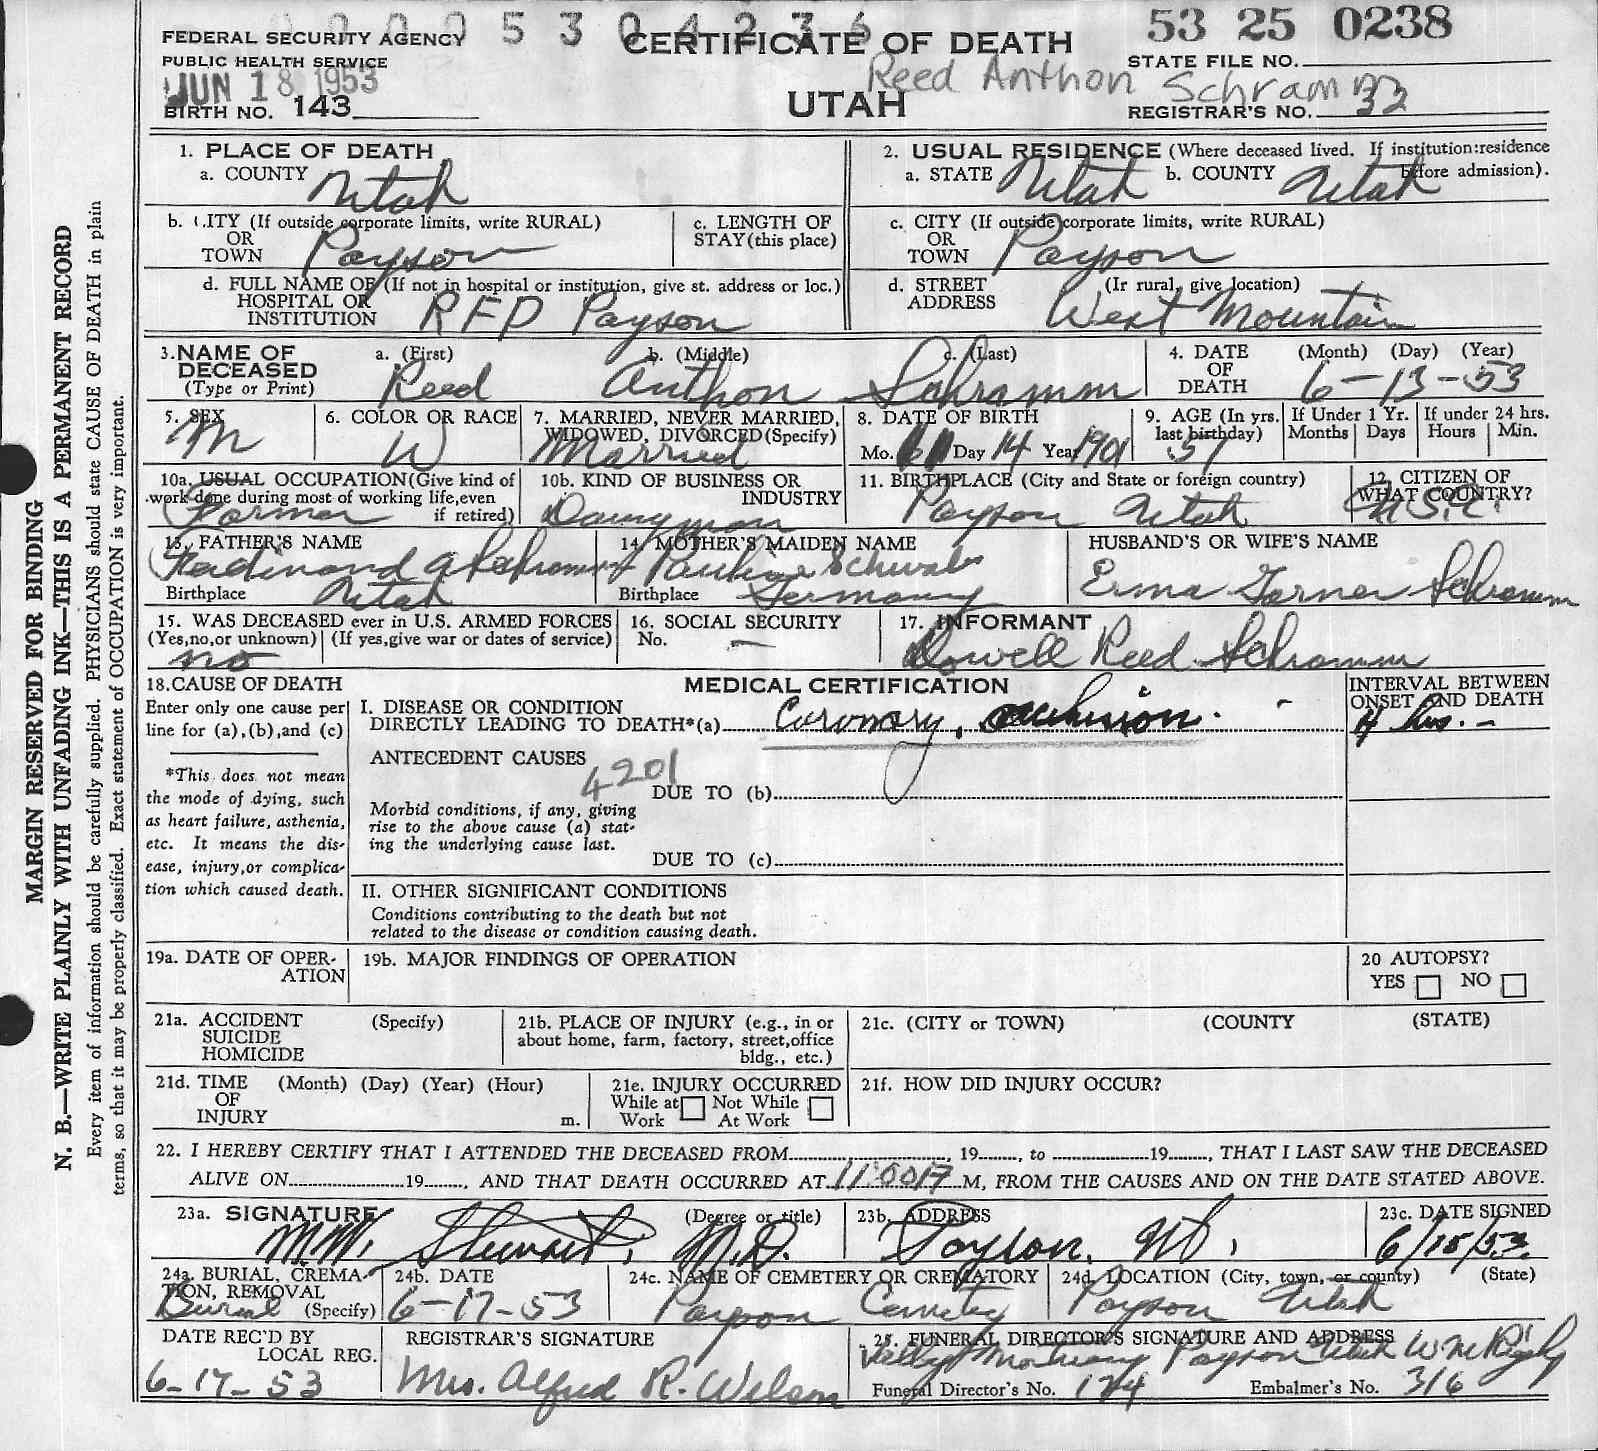 0000530 4236
53 25 0238
FEDERAL SECURITY AGENCY
PUBLIC HEALTH SERVICE
CERTIFICATE OF DEATH
STATE FILE NO.
JUN 18 1953
Reed Anthon Schramm
BIRTH NO. 143
UTAH
REGISTRAR'S NO. 32
1. PLACE OF DEATH
a. COUNTY Utah
2. USUAL RESIDENCE (Where deceased lived. If institution:residence before admission).
a. STATE Utah b. COUNTY Utah
b. CITY (If outside corporate limits, write RURAL)
OR
TOWN Payson
c. LENGTH OF
STAY (this place)
c. CITY (If outside corporate limits, write RURAL)
OR
TOWN Payson
d. FULL NAME OF (If not in hospital or institution, give st. address or loc.)
HOSPITAL OR
INSTITUTION RFD Payson
d. STREET (Ir rural, give location)
ADDRESS West Mountain
3. NAME OF DECEASED
(Type or Print)
a. (First) b. (Middle) c. (Last)
Reed Anthon Schramm
4. DATE OF DEATH
(Month) (Day) (Year)
6-13-53
5. SEX
M
6. COLOR OR RACE
W
7. MARRIED, NEVER MARRIED,
WIDOWED, DIVORCED (Specify)
Married
8. DATE OF BIRTH
Mo. Day 14 Year 1901
9. AGE (In yrs.
last birthday)
51
If Under 1 Yr.
Months Days
If under 24 hrs.
Hours Min.
10a. USUAL OCCUPATION (Give kind of
work done during most of working life, even
if retired)
Farmer
10b. KIND OF BUSINESS OR
INDUSTRY
Dairyman
11. BIRTHPLACE (City and State or foreign country)
Payson Utah
12. CITIZEN OF
WHAT COUNTRY?
U.S.A.
13. FATHER'S NAME
Ferdinand A Schramm
Birthplace Utah
14. MOTHER'S MAIDEN NAME
Pauline Schwab
Birthplace Germany
HUSBAND'S OR WIFE'S NAME
Erma Schramm
15. WAS DECEASED ever in U.S. ARMED FORCES
(Yes,no,or unknown) (If yes,give war or dates of service)
no
16. SOCIAL SECURITY
No. —
17. INFORMANT
Dowell Reed Schramm
18. CAUSE OF DEATH
Enter only one cause per
line for (a),(b),and (c)
*This does not mean
the mode of dying, such
as heart failure, asthenia,
etc. It means the dis-
ease, injury,or complica-
tion which caused death.
MEDICAL CERTIFICATION
I. DISEASE OR CONDITION
DIRECTLY LEADING TO DEATH*(a) Coronary occlusion.
ANTECEDENT CAUSES
4201
DUE TO (b)
Morbid conditions, if any, giving
rise to the above cause (a) stat-
ing the underlying cause last.
DUE TO (c)
II. OTHER SIGNIFICANT CONDITIONS
Conditions contributing to the death but not
related to the disease or condition causing death.
INTERVAL BETWEEN
ONSET AND DEATH
4 hrs. -
19a. DATE OF OPER-
ATION
19b. MAJOR FINDINGS OF OPERATION
20 AUTOPSY?
YES NO
21a. ACCIDENT (Specify)
SUICIDE
HOMICIDE
21b. PLACE OF INJURY (e.g., in or
about home, farm, factory, street,office
bldg., etc.)
21c. (CITY or TOWN) (COUNTY (STATE)
21d. TIME (Month) (Day) (Year) (Hour)
OF
INJURY m.
21e. INJURY OCCURRED
While at Not While
Work At Work
21f. HOW DID INJURY OCCUR?
22. I HEREBY CERTIFY THAT I ATTENDED THE DECEASED FROM 19 , to 19 , THAT I LAST SAW THE DECEASED
ALIVE ON 19 , AND THAT DEATH OCCURRED AT 11:00 M, FROM THE CAUSES AND ON THE DATE STATED ABOVE.
23a. SIGNATURE (Degree or title)
M.M. Stewart, M.D.
23b. ADDRESS
Payson, Ut.
23c. DATE SIGNED
6/15/53
24a. BURIAL, CREMA-
TION, REMOVAL
(Specify)
Burial
24b. DATE
6-17-53
24c. NAME OF CEMETERY OR CREMATORY
Payson Cemetery
24d. LOCATION (City, town, or county) (State)
Payson Utah
DATE REC'D BY
LOCAL REG.
6-17-53
REGISTRAR'S SIGNATURE
Mrs. Alfred R. Wilson
25. FUNERAL DIRECTOR'S SIGNATURE AND ADDRESS
Mortuary Payson Utah
Funeral Director's No. 124 Embalmer's No. 316
MARGIN RESERVED FOR BINDING
N. B.—WRITE PLAINLY WITH UNFADING INK—THIS IS A PERMANENT RECORD
Every item of information should be carefully supplied. PHYSICIANS should state CAUSE OF DEATH in plain
terms, so that it may be properly classified. Exact statement of OCCUPATION is very important.